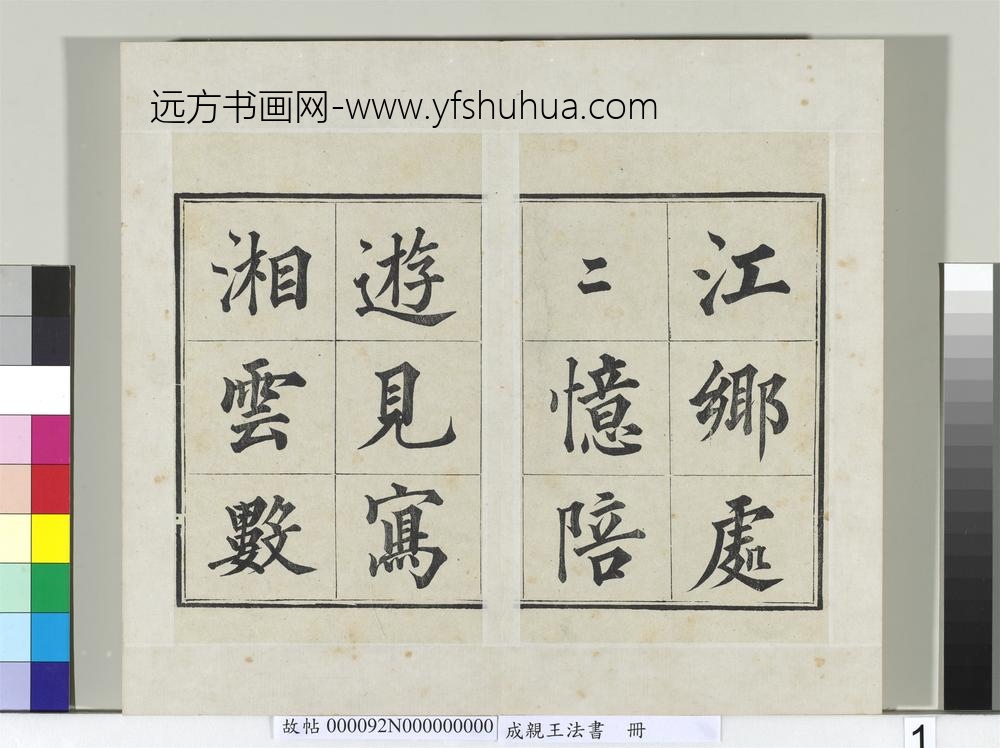 远方书画网-www.yfshuhua.com
江鄉處
二憶陪
遊見寫
湘雲數
故帖 000092N000000000 成親王法書 冊
1